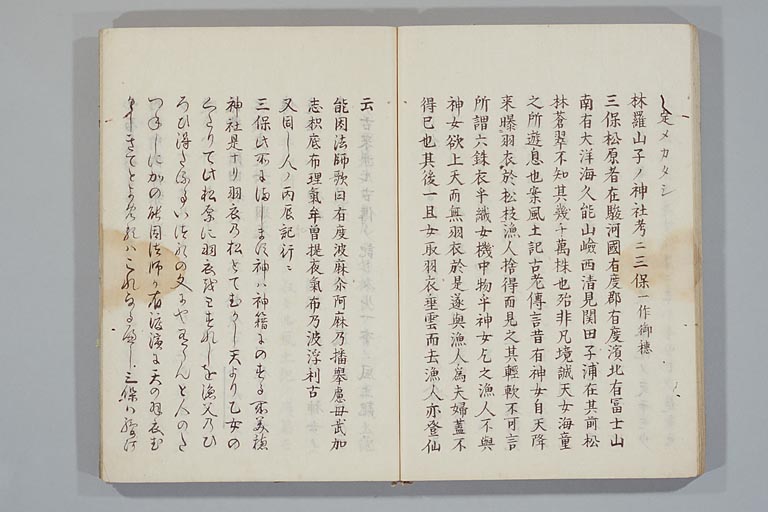 定メカタシ
林羅山子ノ神社考ニ三保一作御穗
三保松原者在駿河國有度郡有度濱北有冨士山
南有大洋海久能山嶮西清見関田子浦在其前松
林蒼翠不知其幾千萬株也殆非凡境誠天女海童
之所遊息也案風土記古老傳言昔有神女自天降
来曝羽衣於松枝漁人捨得而見之其軽軟不可言
所謂六銖衣乎織女機中物乎神女乞之漁人不與
神女欲上天而無羽衣於是遂與漁人為夫婦蓋不
得已也其後一旦女取羽衣乗雲而去漁人亦登仙
云
能因法師歌曰有度波麻尒阿麻乃播擧慮毋武加
志枳底布理氣牟曽提夜氣布乃波浮利古
又同し人ノ丙辰記行ニ
三保此所にまします神ハ神籍にのする所三穂
神社是ナリ羽衣乃松とてむかし天より乙女の
くたりて此松原に羽衣をぬきしを漁父乃ひ
ろひ得たる
つねしにかの能因法師か有渡濱に天の羽衣む
かしきて